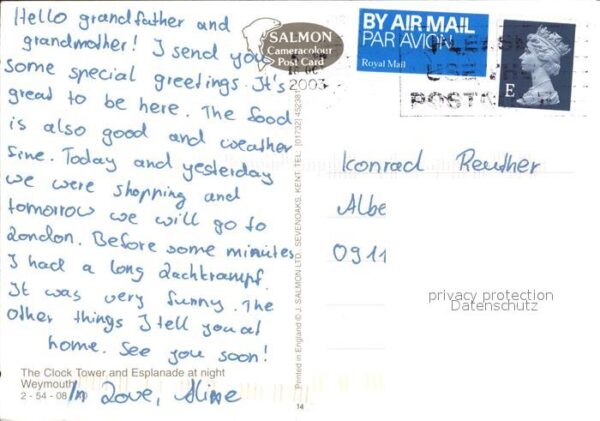 Hello grandfather and
grandmother! I send you
some special greetings. It's
great to be here. The food
is also good and weather
fine. Today and yesterday
we were shopping and
tomorrow we will go to
London. Before some minutes
I had a long Lachkrampf.
It was very funny. The
other things I tell you at
home. See you soon!
In Love, Aline
The Clock Tower and Esplanade at night
Weymouth
2 - 54 - 08
SALMON
Cameracolour
Post Card
2003
Printed in England © J. SALMON LTD. SEVENOAKS. KENT. TEL: (01732) 452381
14
BY AIR MAIL
PAR AVION
Royal Mail
E
PLEASE
USE THE
POSTCODE
Konrad Reuther
Albe
0911
privacy protection
Datenschutz